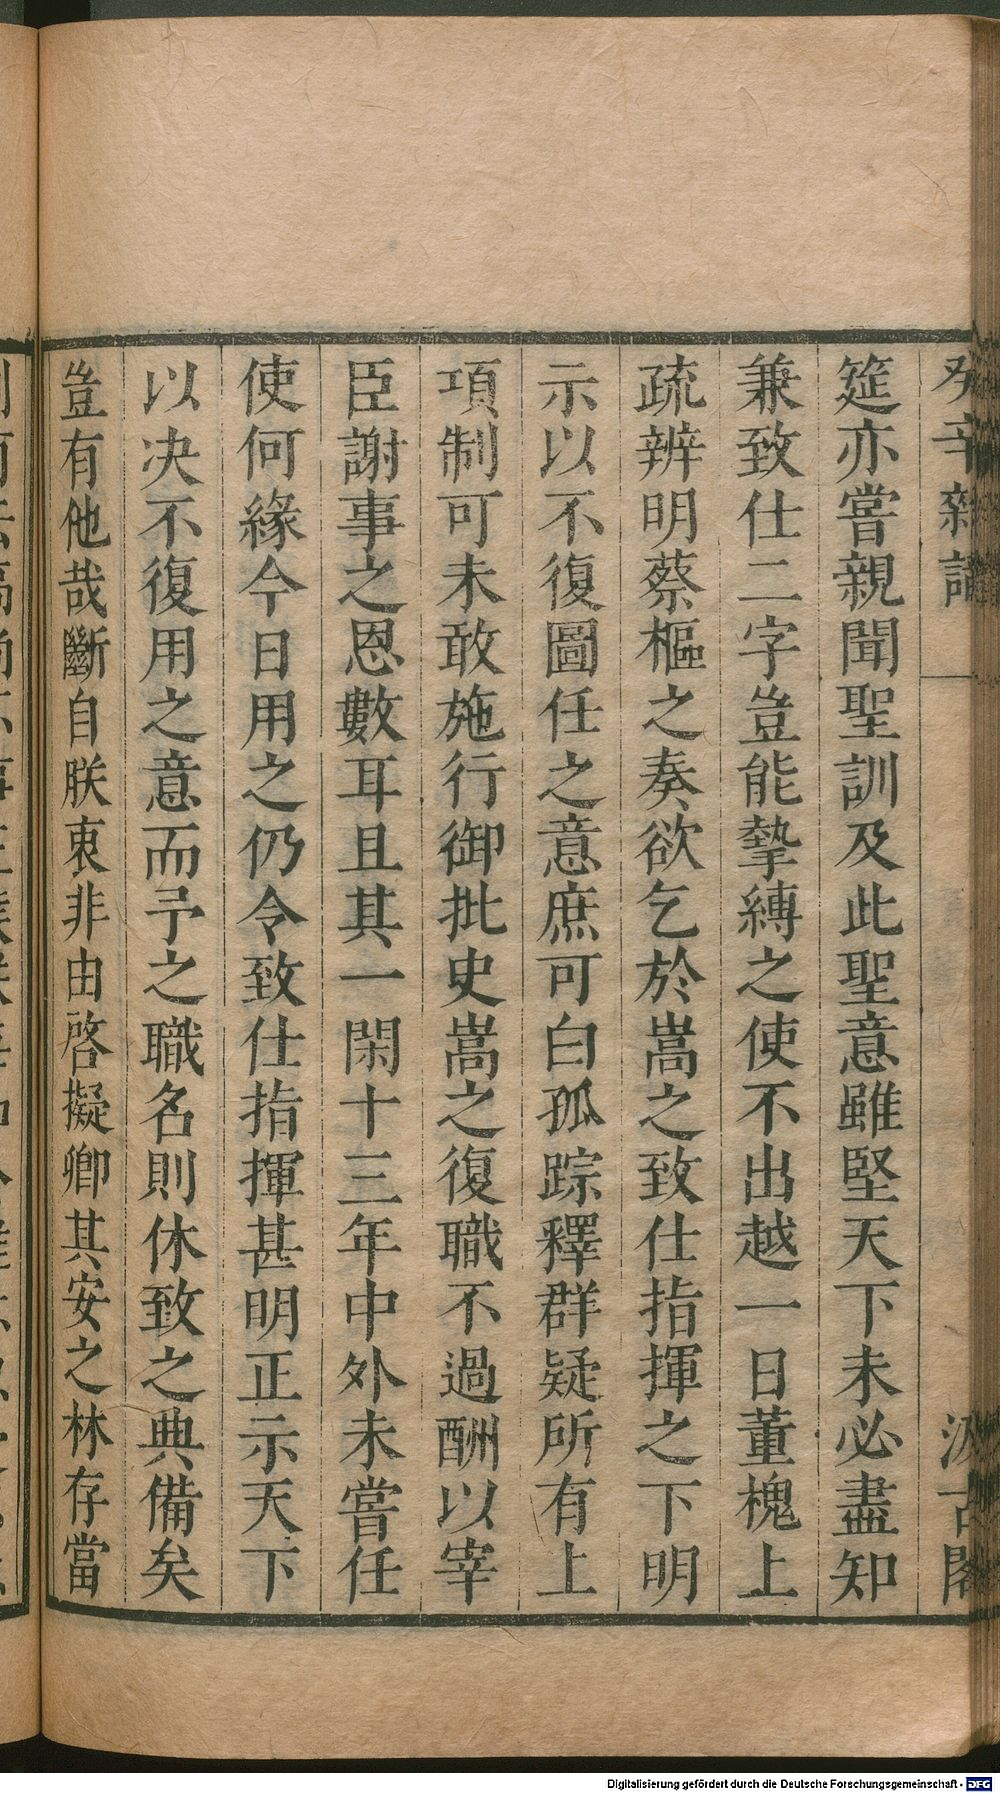 癸辛雜識
汲古閣
筵亦嘗親聞聖訓及此聖意雖堅天下未必盡知
兼致仕二字豈能摯縛之使不出越一日董槐上
疏辨明蔡樞之奏欲乞於嵩之致仕指揮之下明
示以不復圖任之意庶可白孤踪釋群疑所有上
項制可未敢施行御批史嵩之復職不過酬以宰
臣謝事之恩數耳且其一閑十三年中外未嘗任
使何緣今日用之仍令致仕指揮甚明正示天下
以决不復用之意而予之職名則休致之典備矣
豈有他哉斷自朕衷非由啓擬卿其安之林存當
Digitalisierung gefördert durch die Deutsche Forschungsgemeinschaft - DFG